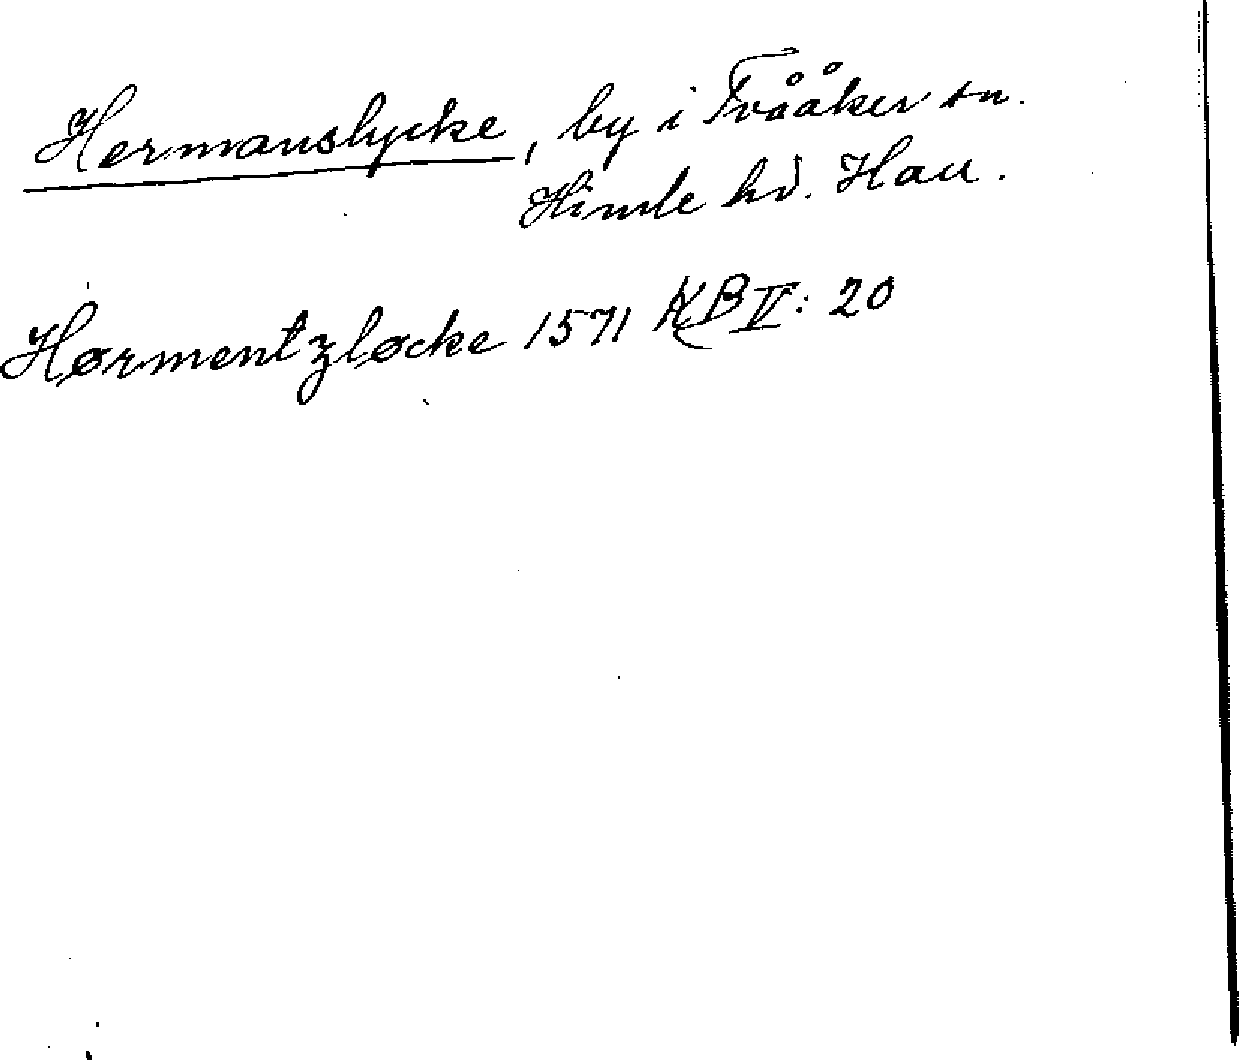 Hermanslycke, by i Tvååker sn.
Himle hd. Hall.
Hørmentzløcke 1571 KB V: 20